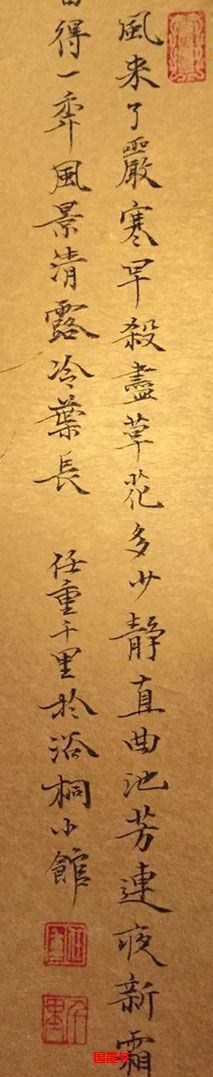 風来了嚴寒早殺盡草花多少靜直曲池芳連夜新霜
得一季風景清露冷葉長
任重千里於浴桐小館